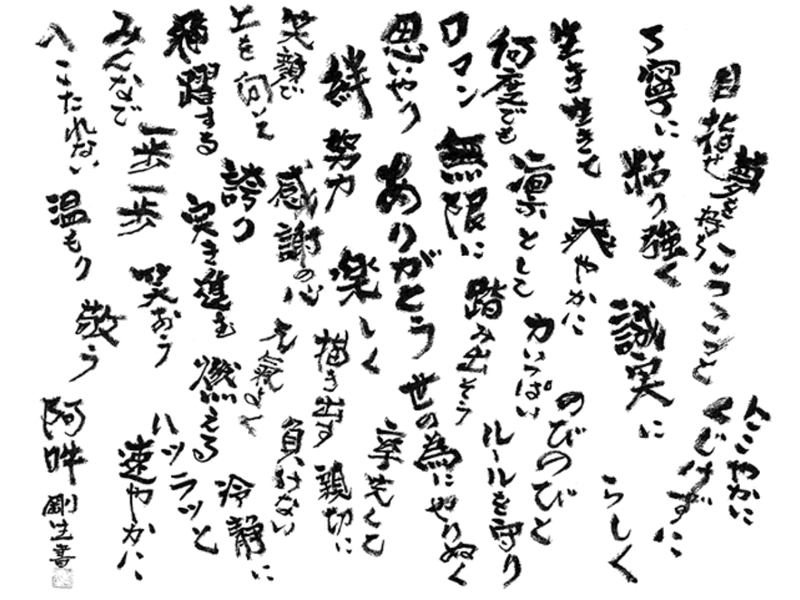 にこやかに
夢を
目指せ
こつこつと
くじけずに
丁寧に
粘り強く
誠実に
らしく
生き生きて
爽やかに
のびのびと
何度でも
凛として
力いっぱい
ルールを守り
ロマン
無限に
踏み出そう
思いやり
ありがとう
世の為にやりぬく
絆
努力
楽しく
卒先して
笑顔で
感謝の心
描き出す
親切に
上を向いて
誇り
元氣よく
負けない
飛躍する
突き進む
燃える
冷静に
みんなで
一歩一歩
笑おう
ハツラツと
速やかに
へこたれない
温もり
敬う
阿吽
剛生書